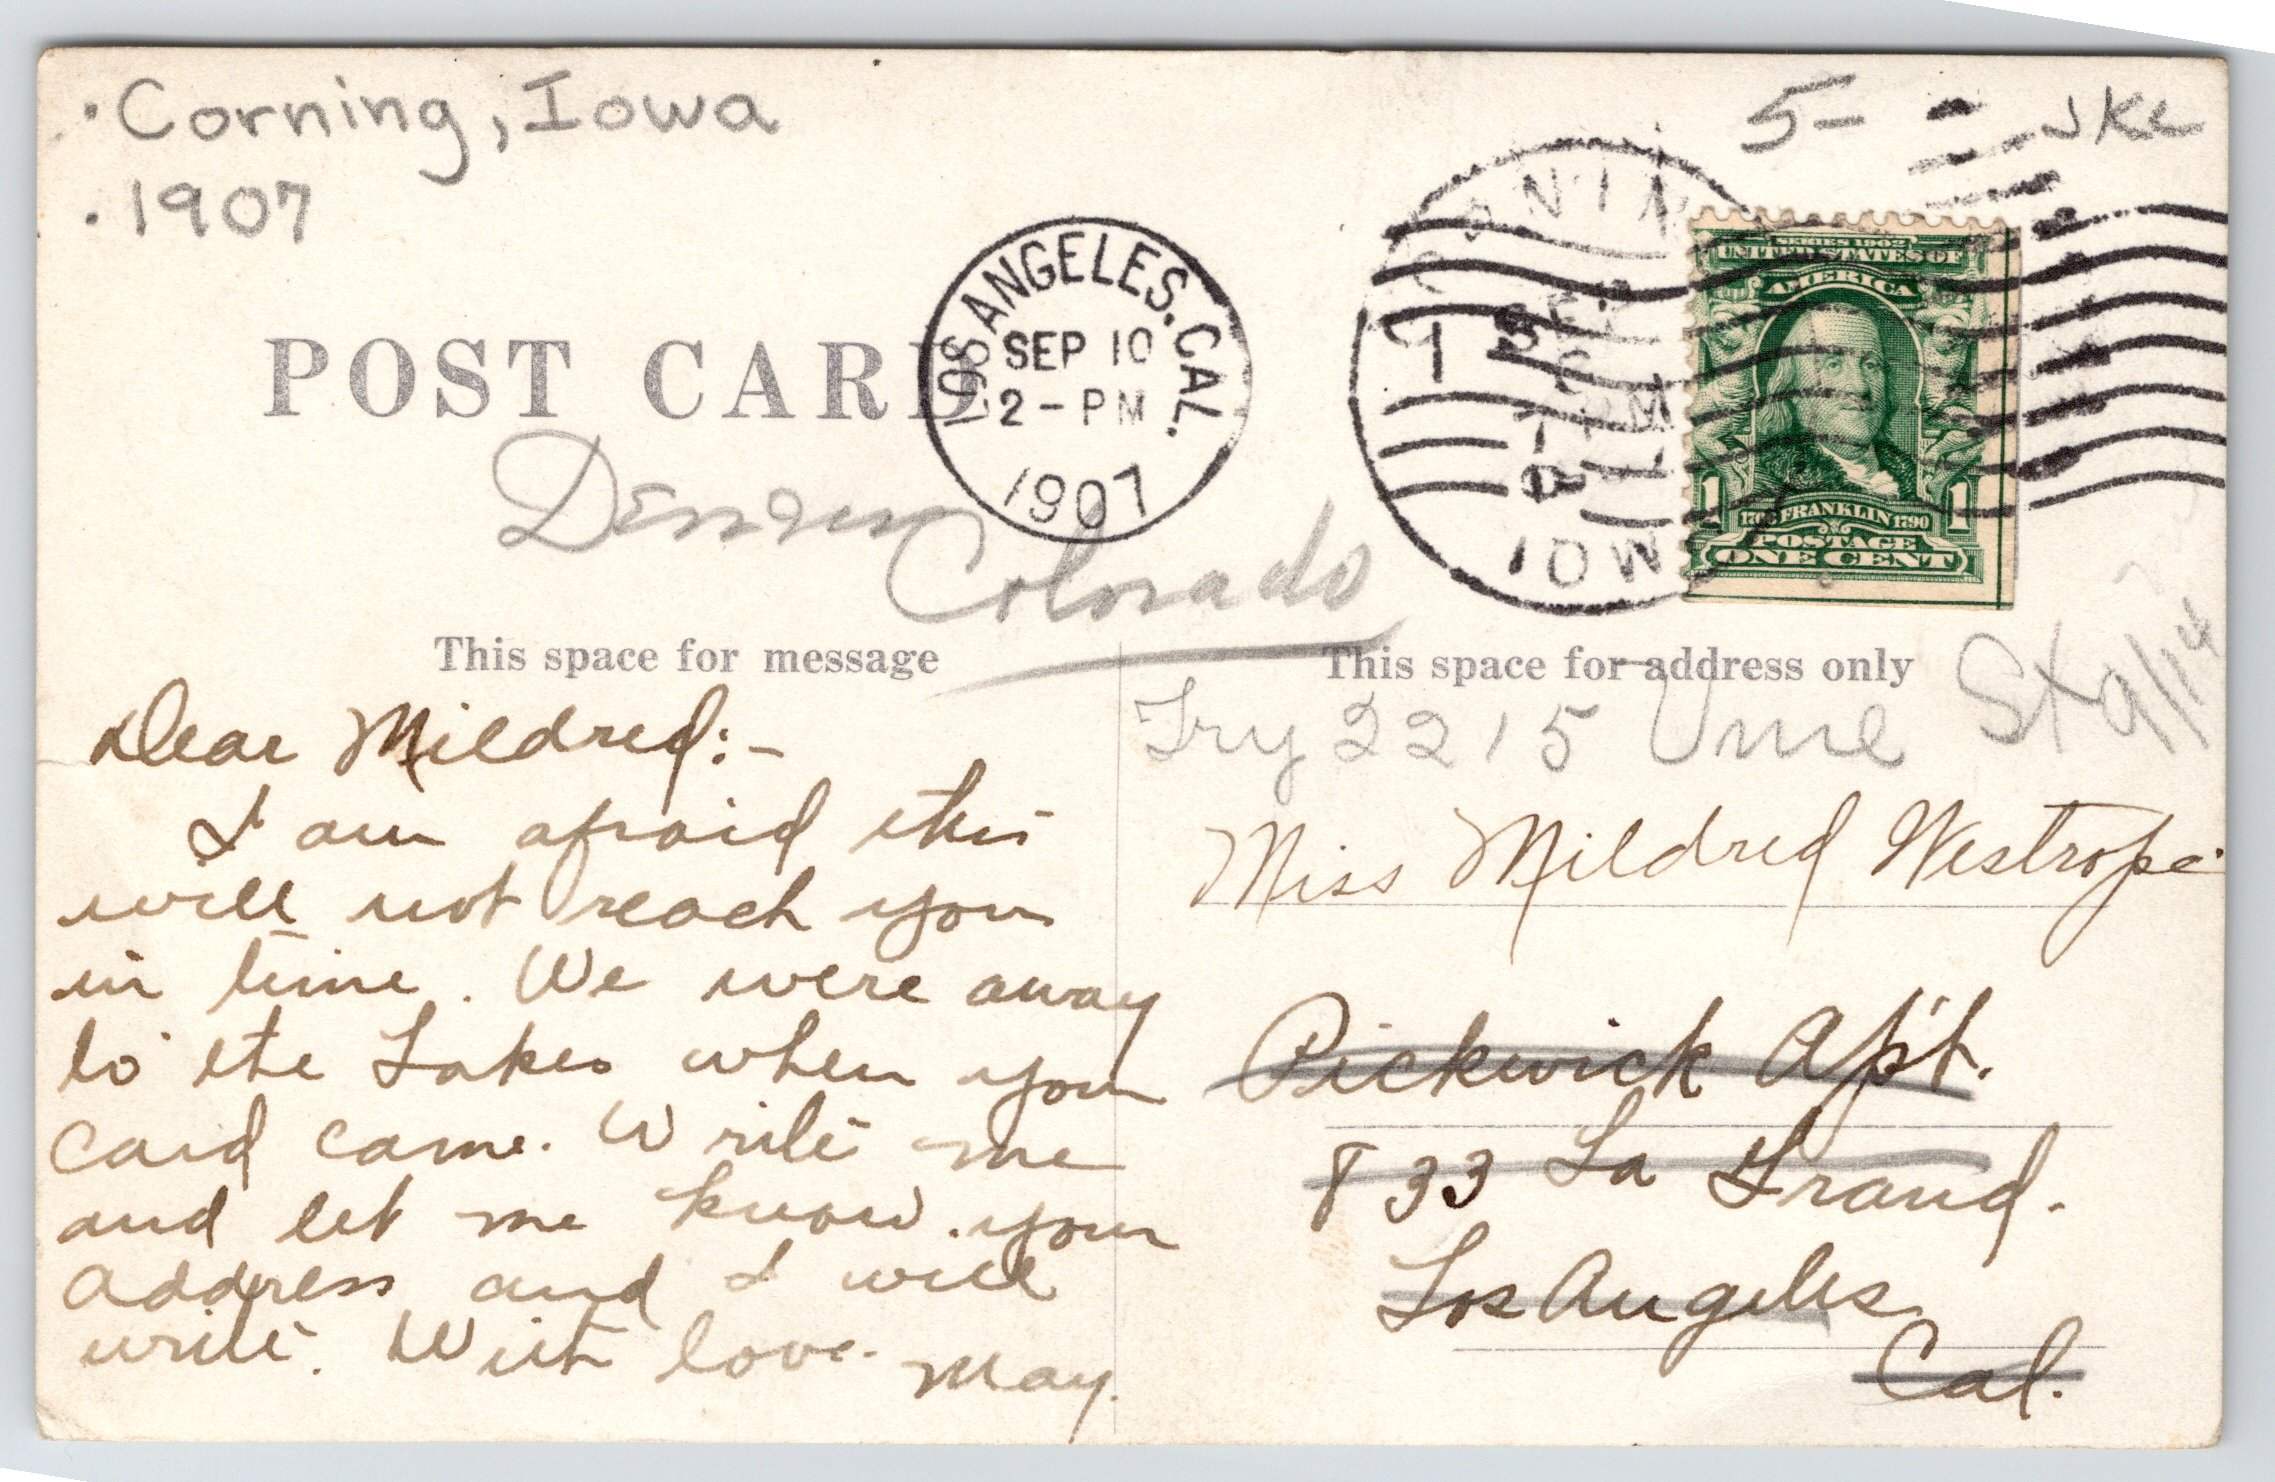 Corning, Iowa
1907
5-
POST CARD
LOS ANGELES, CAL.
SEP 10
2-PM
1907
SEP
IOWA
SERIES 1902
UNITED STATES OF
AMERICA
1 1
FRANKLIN 1790
POSTAGE
ONE CENT
Denver
Colorado
This space for message
This space for address only
Try 2215 Vine St 9/14
Dear Mildred:-
I am afraid this
will not reach you
in time. We were away
to the Lakes when your
card came. Write me
and let me know your
address and I will
write. With love. May.
Miss Mildred Westrope
Pickwick Ap't.
833 La Grand.
Los Angeles
Cal.